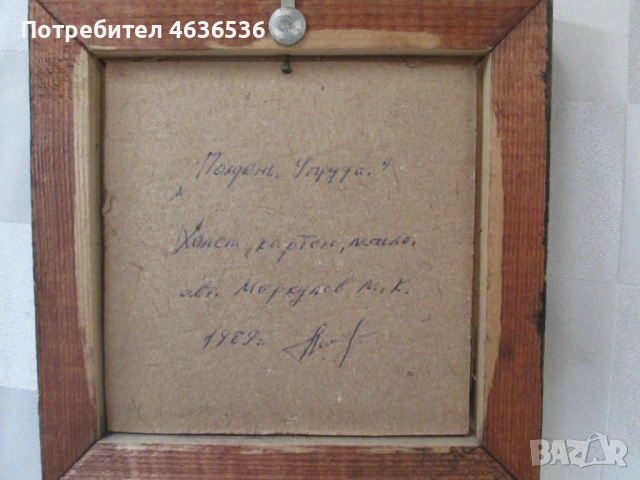 Потребител 4636536
„Полдень. У пруда.“
Холст, картон, масло.
авт. Меркулов М.К.
1989г.
BAZAR